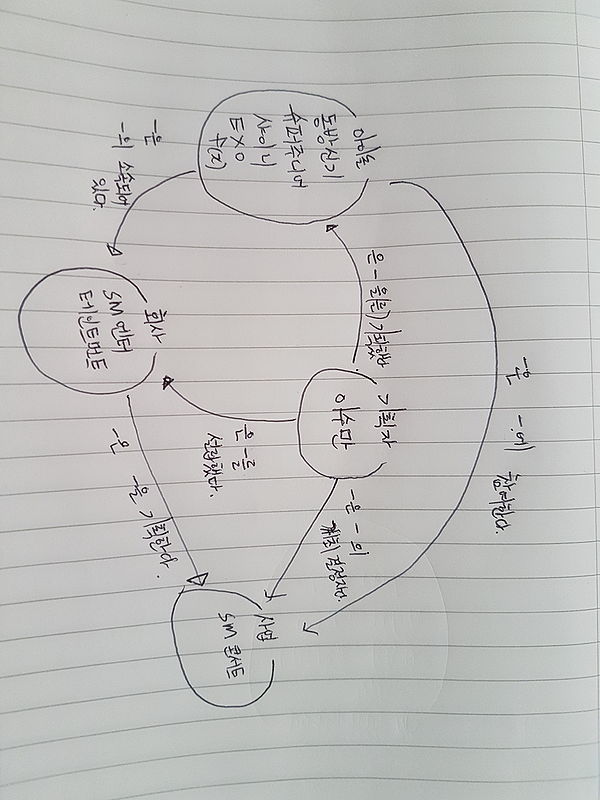 아이돌
동방신기
슈퍼주니어
샤이니
EXO
f(x)
-은
-의 소속되어
있다.
은 -을(를) 기획했다.
-은 -에 참여한다.
기획자
이수만
회사
SM 엔터
테인트먼트
은 -를
설립했다.
-은 -의
개최 결정자다.
-은 -을 기획한다.
사업
SM 콘서트